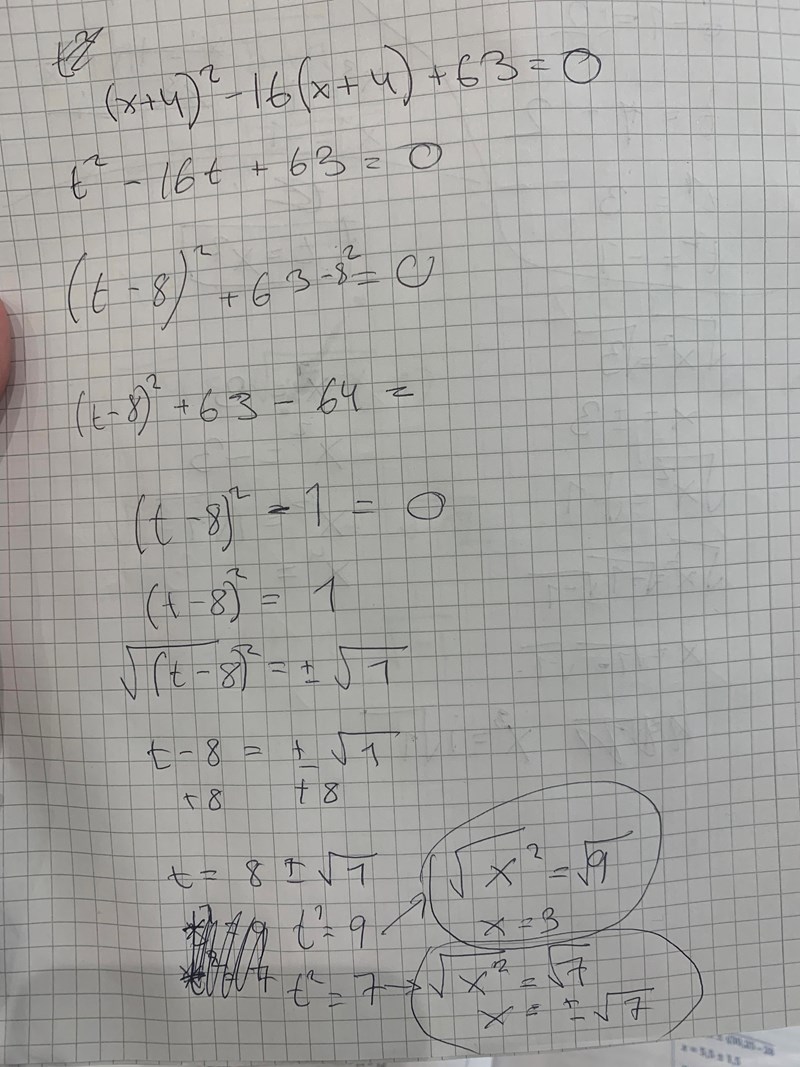 (x+4)² - 16(x+4) + 63 = 0
t² - 16t + 63 = 0
(t - 8)² + 63 - 8² = 0
(t-8)² + 63 - 64 =
(t - 8)² - 1 = 0
(t - 8)² = 1
√(t - 8)² = ± √1
t - 8 = ± √1
+8 +8
t = 8 ± √1
√x² = √9
t² = 9 →
x = 3
t² = 7 → √x² = √7
x = ±√7